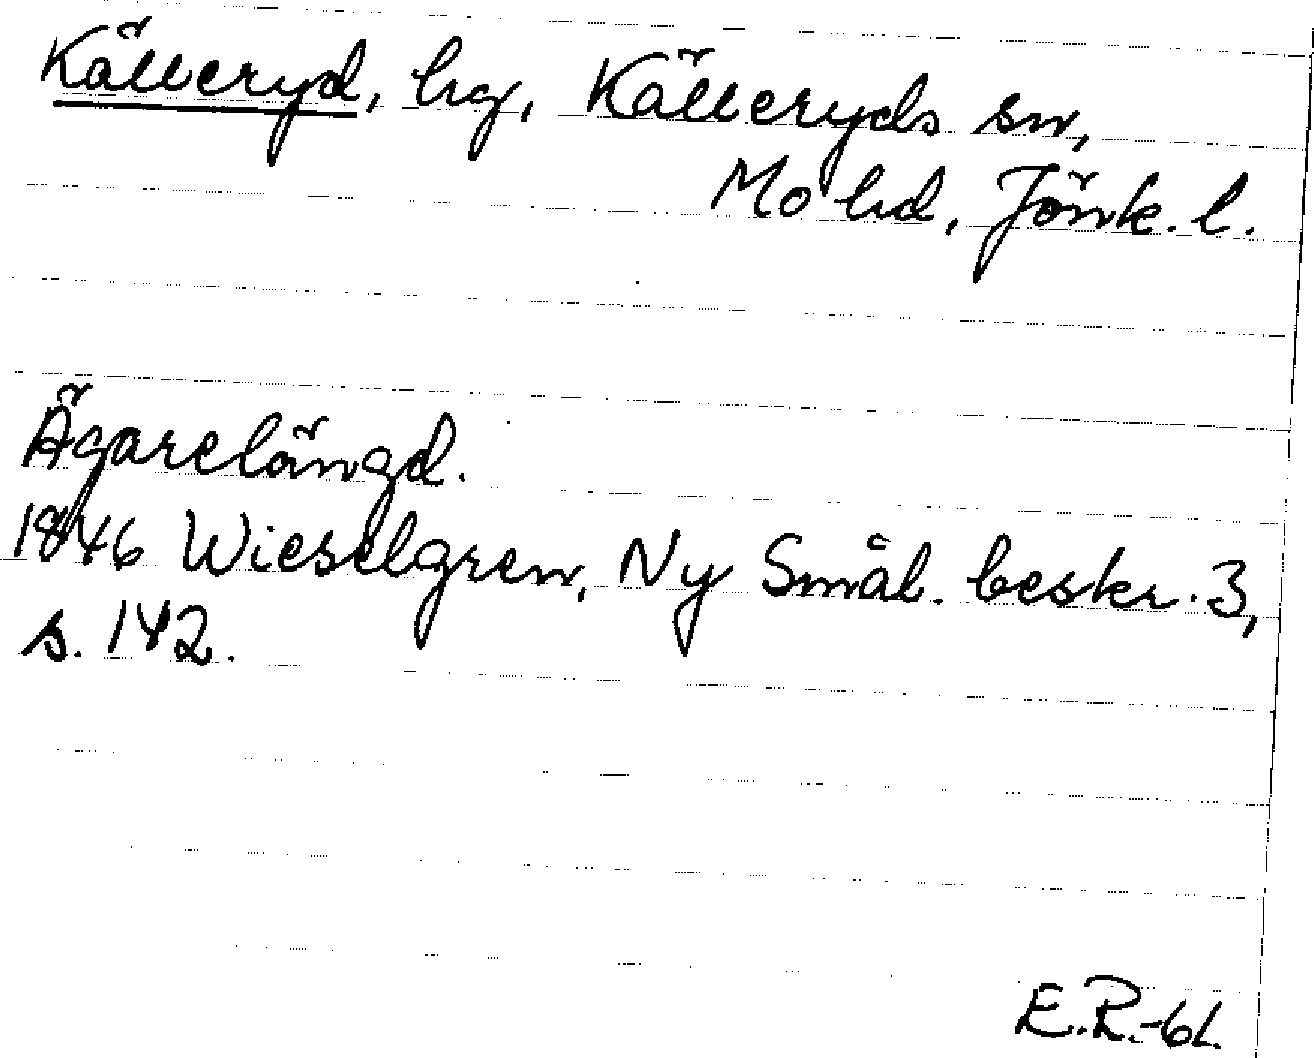 Källeryd, hg, Källeryds sn,
Mo hd, Jönk. l.
Ägarelängd.
1846 Wieselgren, Ny Smål. beskr. 3,
s. 142.
E.R.-61.